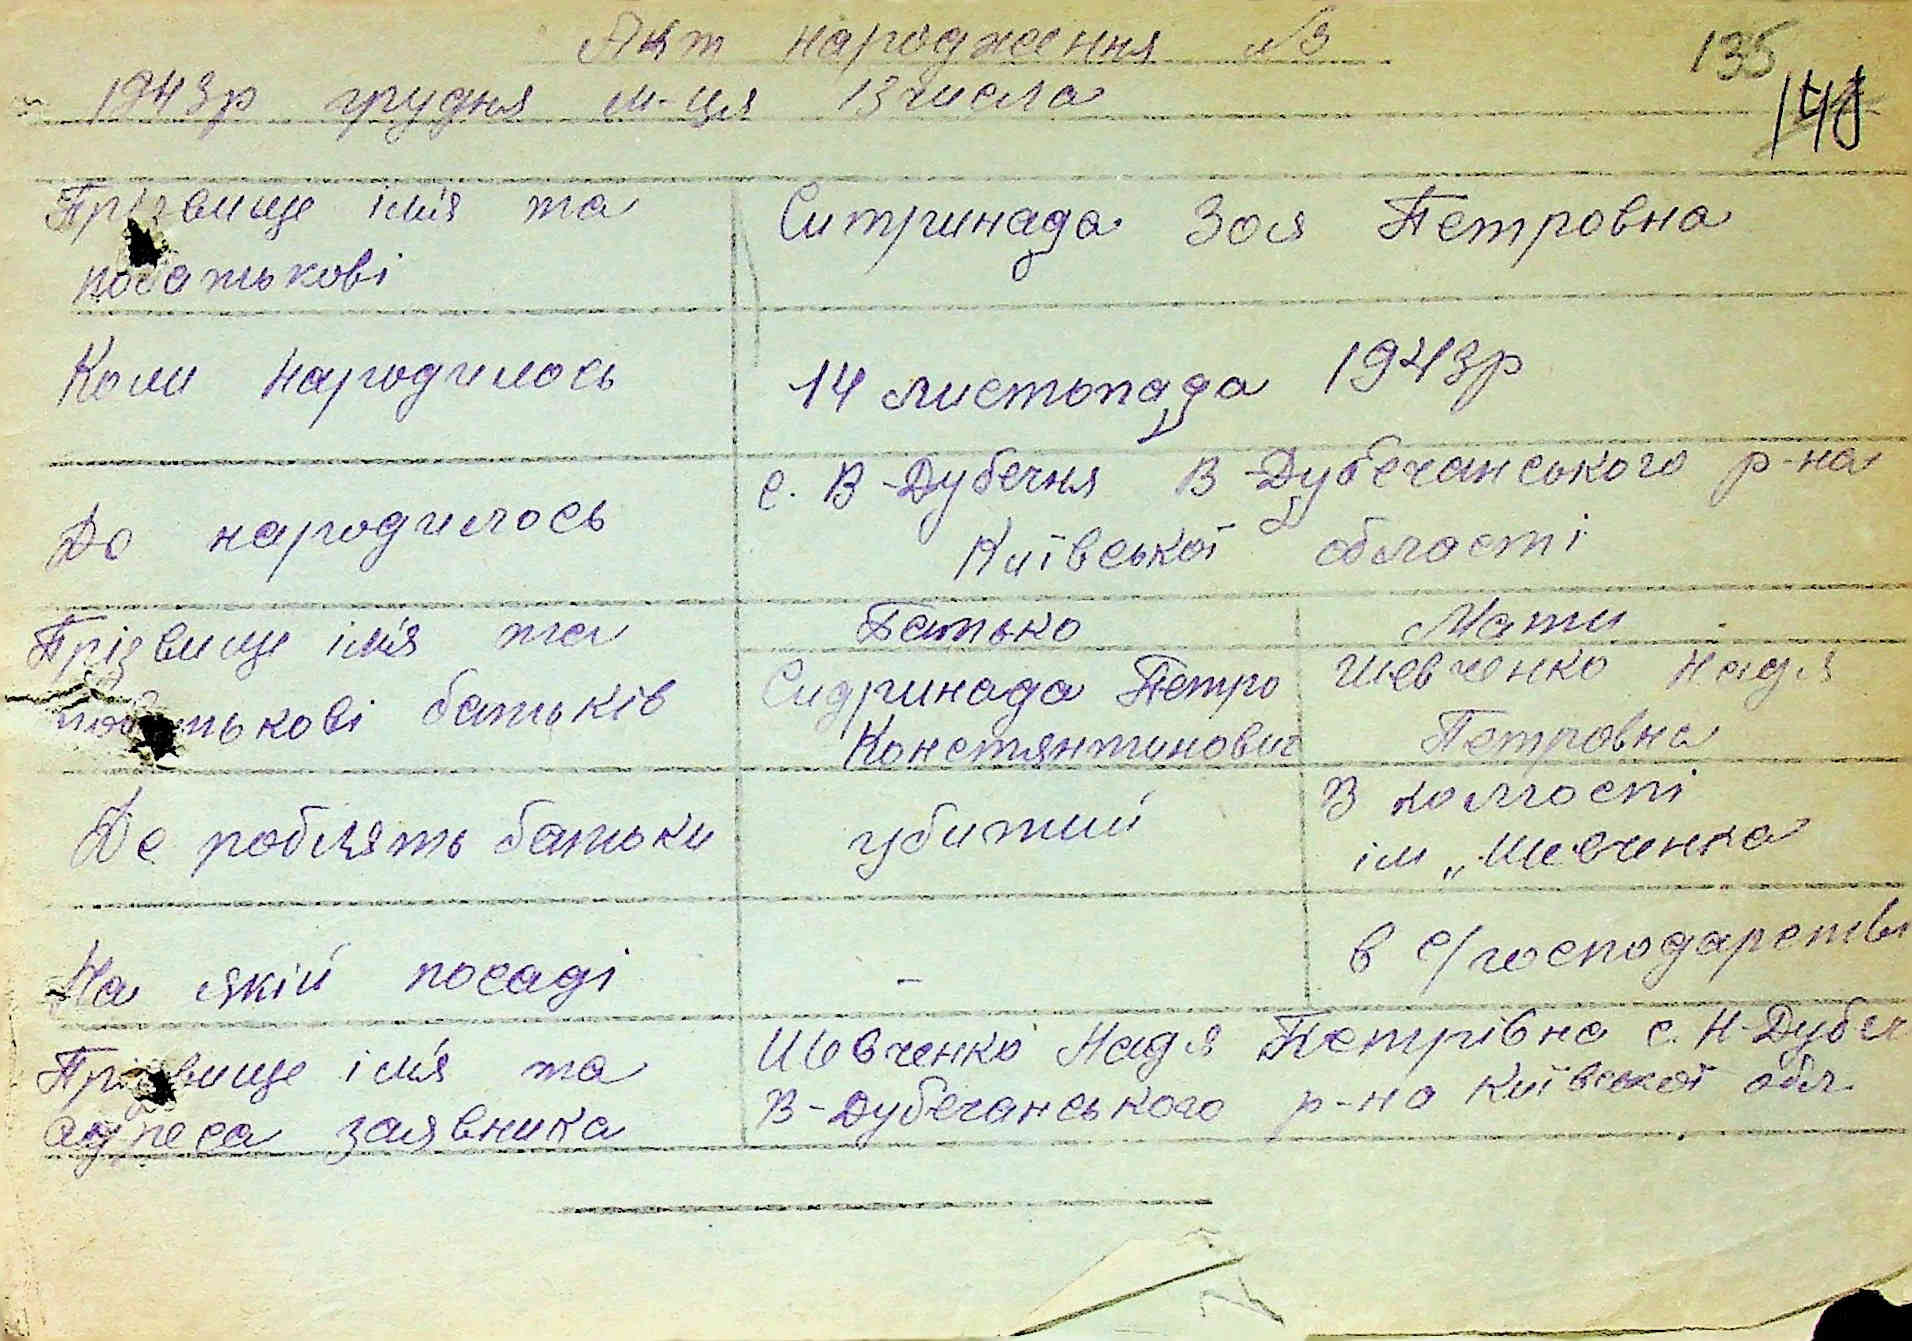 Акт народження №3
135
1943р грудня м-ця 13 числа
Прізвище ім'я та
побатькові
Ситринада Зоя Петровна
Коли народилось
14 листопада 1943р
Де народилось
с. В-Дубечня В-Дубечанського р-на
Київської області
Прізвище ім'я та
побатькові батьків
Батько
Мати
Сидринада Петро
Констянтинович
Шевченко Надя
Петровна
Де роблять батьки
убитий
В колгоспі
ім „Шевченка
На якій посаді
-
в с/господарстві
Прізвище ім'я та
адреса заявника
Шевченко Надя Петрівна с. Н-Дубеч
В-Дубечанського р-на Київської обл.